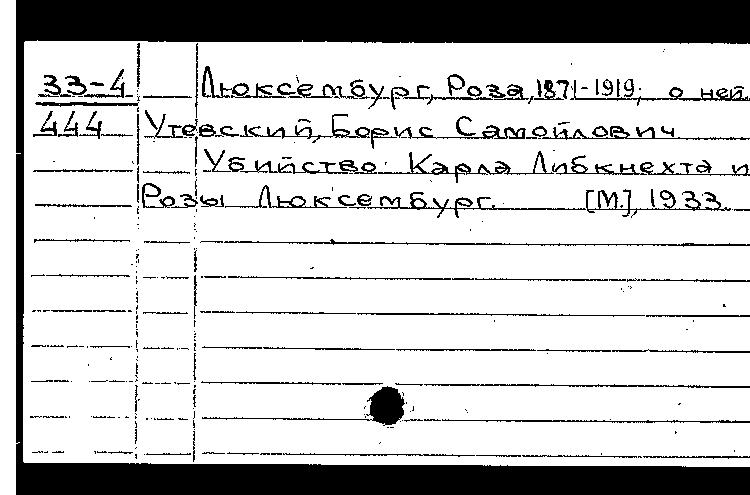 33-4 Люксембург, Роза, 1871-1919; о ней.
444 Утевский, Борис Самойлович
Убийство Карла Либкнехта и
Розы Люксембург. [М.], 1933.